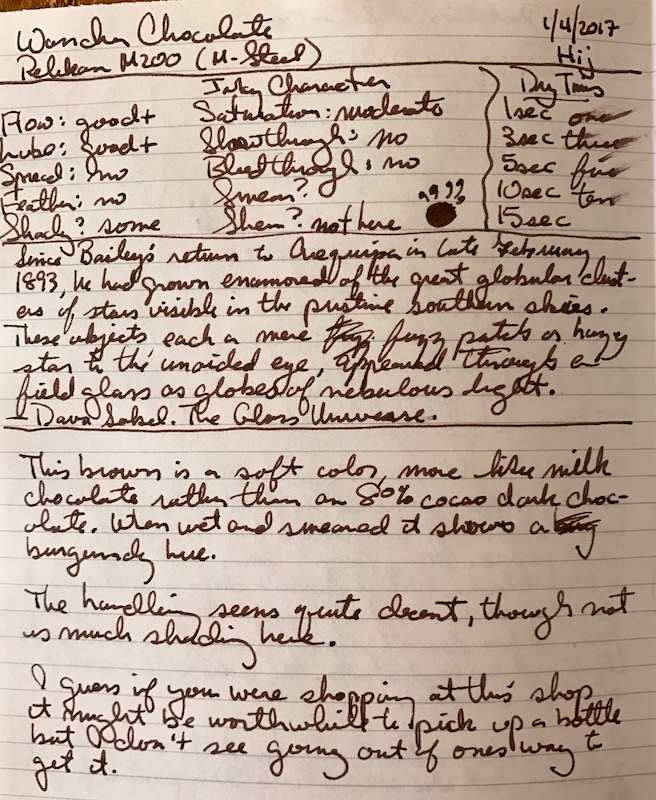 Wancher Chocolate 1/4/2017
Pelikan M200 (M-Steel) Hij
Inky Character Dry Times
Flow: good+ Saturation: moderate 1sec one
Lube: good+ Showthrough: no 3sec three
Spread: no Bleedthrough: no 5sec five
Feather: no Smear? 10sec ten
Shady? some Sheen? not here 15sec
Since Bailey's return to Arequipa in late February
1893, he had grown enamored of the great globular clust-
ers of stars visible in the pristine southern skies.
These objects each a mere fuzz patch or hazy
star to the unaided eye, appeared through a
field glass as globes of nebulous light.
— Dava Sobel. The Glass Universe.
This brown is a soft color, more like milk
chocolate rather than an 80% cocao dark choc-
olate. When wet and smeared it shows a
burgundy hue.
The handling seems quite decent, though not
as much shading here.
I guess if you were shopping at this shop
it might be worthwhile to pick up a bottle
but I don't see going out of ones way to
get it.